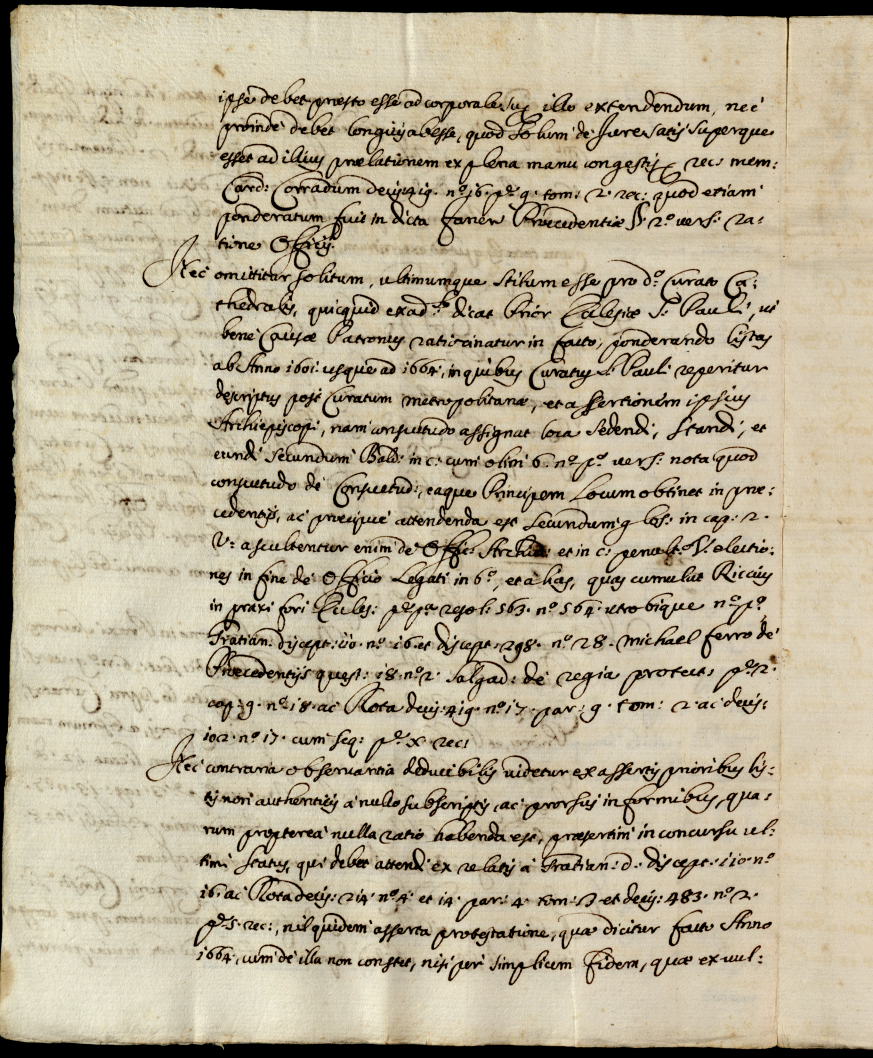 ipse debet præsto esse ad corporale illo extendendum, nec
proinde debet longius abesse, quod solum de Jure satis superque
esset ad illius prælationem ex plena manu congestis rec: mem:
Card: Corradum decis: 419. nº 16. pe. 9. tom: 2. rec: quod etiam
ponderatum fuit in dicta Præcedentiæ §. 2º vers: ra:
tione Officij.
Nec omittitur solitum, ultimumque stilum esse pro do. Curato Ca:
thedralis, quicquid ex ad dicat Prior Ecclesiæ S. Pauli, ut
bene Causæ Patronus ratiocinatur in facto, ponderando listas
ab Anno 1601. usque ad 1664. in quibus Curatus S. Pauli reperitur
descriptus post Curatum metropolitanæ, et assertionem ipsius
Archiepiscopi, nam consuetudo assignat loca sedendi, standi, et
eundi secundum Bald: in c: cum olim 6. nº pº vers: nota quod
consuetudo de Consuetud:, eaque Principem Locum obtinet in præ:
cedentijs, ac præcipue attendenda est secundum glos: in cap: 2.
V: ascultentur enim de Offic: Archid: et in c: penult. V. electio:
nes in fine de Officio Legati in 6º, et alias, quas cumulat Riccius
in praxi fori Eccles: pe. pa. resol: 563. nº 564. utrobique nº pº
Gratian: discept: 110. nº 16. et discept: 298. nº 28. Michael ferro de
Præcedentijs quest: 18. nº 2. Salgad: de regia protect: pe. 2.
cap: 9. nº 18. ac Rota decis: 419. nº 17. par: 9. tom: 2. ac decis:
102. nº 17. cum seq: pe. X. rec:
Nec contraria observantia deducibilis videtur ex assertis prioribus lis:
tis non authenticis a nullo subscriptis, ac prorsus informibus, qua:
rum propterea nulla ratio habenda est, præsertim in concursu ul:
timi status, qui debet attendi ex relatis a Gratian: d. discept: 110. nº
16. ac Rota decis: 214. nº 4. et 14. par: 4. tom: 3. et decis: 483. nº 2.
pe. 5. rec:, nil quidem asserta protestatione, quæ dicitur facta Anno
1664. cum de illa non constet, nisi per simplicem Fidem, quæ ex vul: